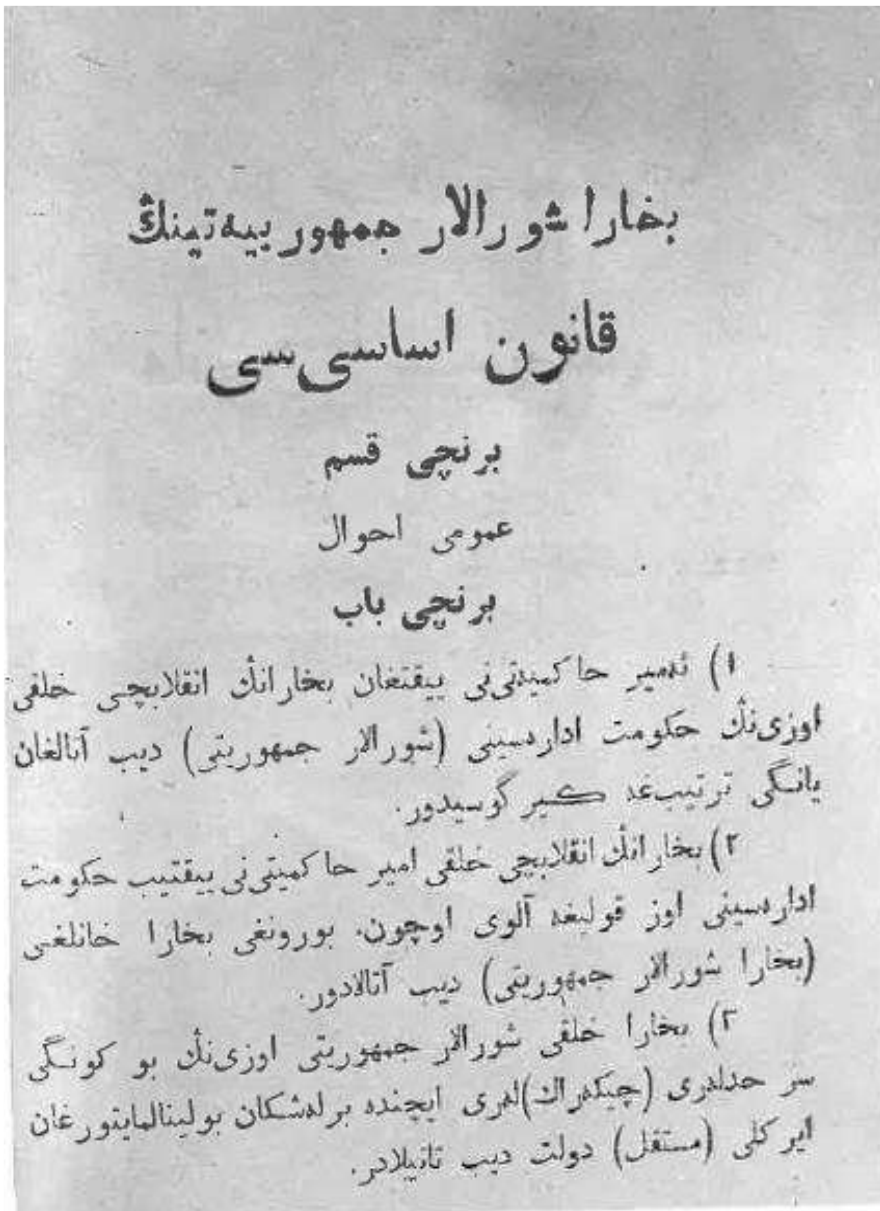 بخارا شورالار جمهوربیه‌تینڭ
قانون اساسی‌سی
برنچی قسم
عمومی احوال
برنچی باب
۱) ئه‌میر حاکمیه‌تی‌نی ییقتغان بخارانڭ انقلابچی خلقی
اوزی‌نڭ حکومت اداره‌سینی (شورالار جمهوریتی) دیب آتالغان
یانگی ترتیب‌غه کیر گوسیدور.
۲) بخارانڭ انقلابچی خلقی امیر حاکمیتی‌نی ییقتیب حکومت
اداره‌سینی اوز قولیغه آلوی اوچون، بورونغی بخارا خانلغی
(بخارا شورالار جمهوریتی) دیب آتالادور.
۳) بخارا خلقی شورالار جمهوریتی اوزی‌نڭ بو کونگی
سر حدله‌ری (چیگه‌راك)له‌ری ایچنده برله‌شکان بولینالمایتورغان
ایرکلی (مستقل) دولت دیب تانیلادر.